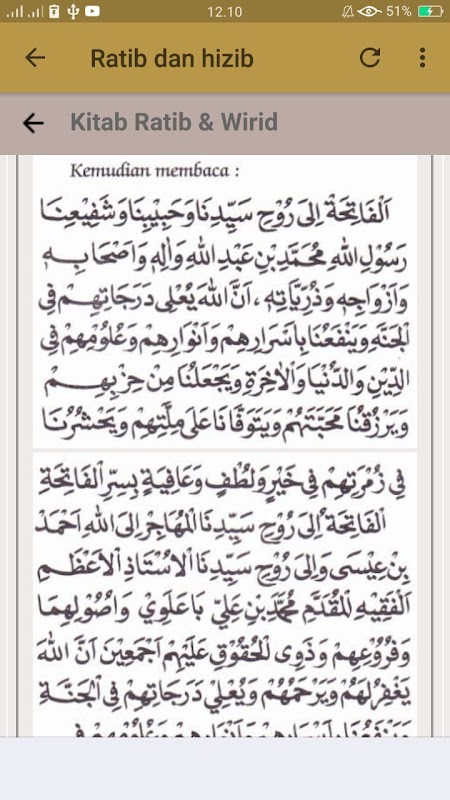 12.10
51%
Ratib dan hizib
Kitab Ratib & Wirid
Kemudian membaca :
اَلْفَاتِحَةْ اِلَى رُوْحِ سَيِّدِنَا وَحَبِيْبِنَا وَشَفِيْعِنَا
رَسُوْلِ اللهِ مُحَمَّدِ بْنِ عَبْدِ اللهِ وَاٰلِهِ وَاَصْحَابِهِ
وَاَزْوَاجِهِ وَذُرِّيَّاتِهِ ، اَنَّ اللهَ يُعْلِى دَرَجَاتِهِمْ فِى
الْجَنَّةِ وَيَنْفَعُنَا بِاَسْرَارِهِمْ وَاَنْوَارِهِمْ وَعُلُوْمِهِمْ فِى
الدِّيْنِ وَالدُّنْيَا وَالْاٰخِرَةِ وَيَجْعَلُنَا مِنْ حِزْبِهِمْ
وَيَرْزُقُنَا مَحَبَّتَهُمْ وَيَتَوَفَّانَا عَلَى مِلَّتِهِمْ وَيَحْشُرُنَا
فِي زُمْرَتِهِمْ فِي خَيْرٍ وَلُطْفٍ وَعَافِيَةٍ بِسِرِّ الْفَاتِحَةِ
الْفَاتِحَةُ اِلَى رُوْحِ سَيِّدِنَا الْمُهَاجِرِ اِلَى اللهِ اَحْمَدْ
بِنْ عِيْسَى وَاِلَى رُوْحِ سَيِّدِنَا الْاُسْتَاذِ الْاَعْظَمِ
اَلْفَقِيْهِ الْمُقَدَّمِ مُحَمَّدِ بْنِ عَلِيّ بَاعَلَوِيْ وَاُصُوْلِهِمَا
وَفُرُوْعِهِمْ وَذَوِى الْحُقُوْقِ عَلَيْهِمْ اَجْمَعِيْنَ اَنَّ اللهَ
يَغْفِرُ لَهُمْ وَيَرْحَمُهُمْ وَيُعْلِيْ دَرَجَاتِهِمْ فِي الْجَنَّةِ
وَيَنْفَعُنَا بِاَسْرَارِهِمْ وَاَنْوَارِهِمْ وَعُلُوْمِهِمْ فِي